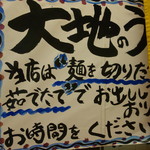 大地のう
当店は"麺を切りた
茹でたて"でお出しし
おり
お時間をください